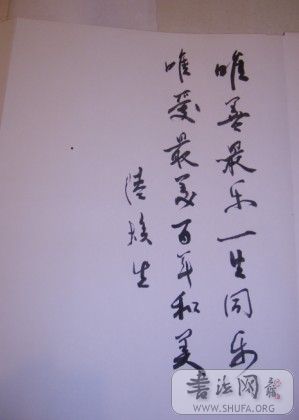 唯善最乐一生同乐
唯爱最美百年和美
陆焕生
书法网
WWW.SHUFA.ORG